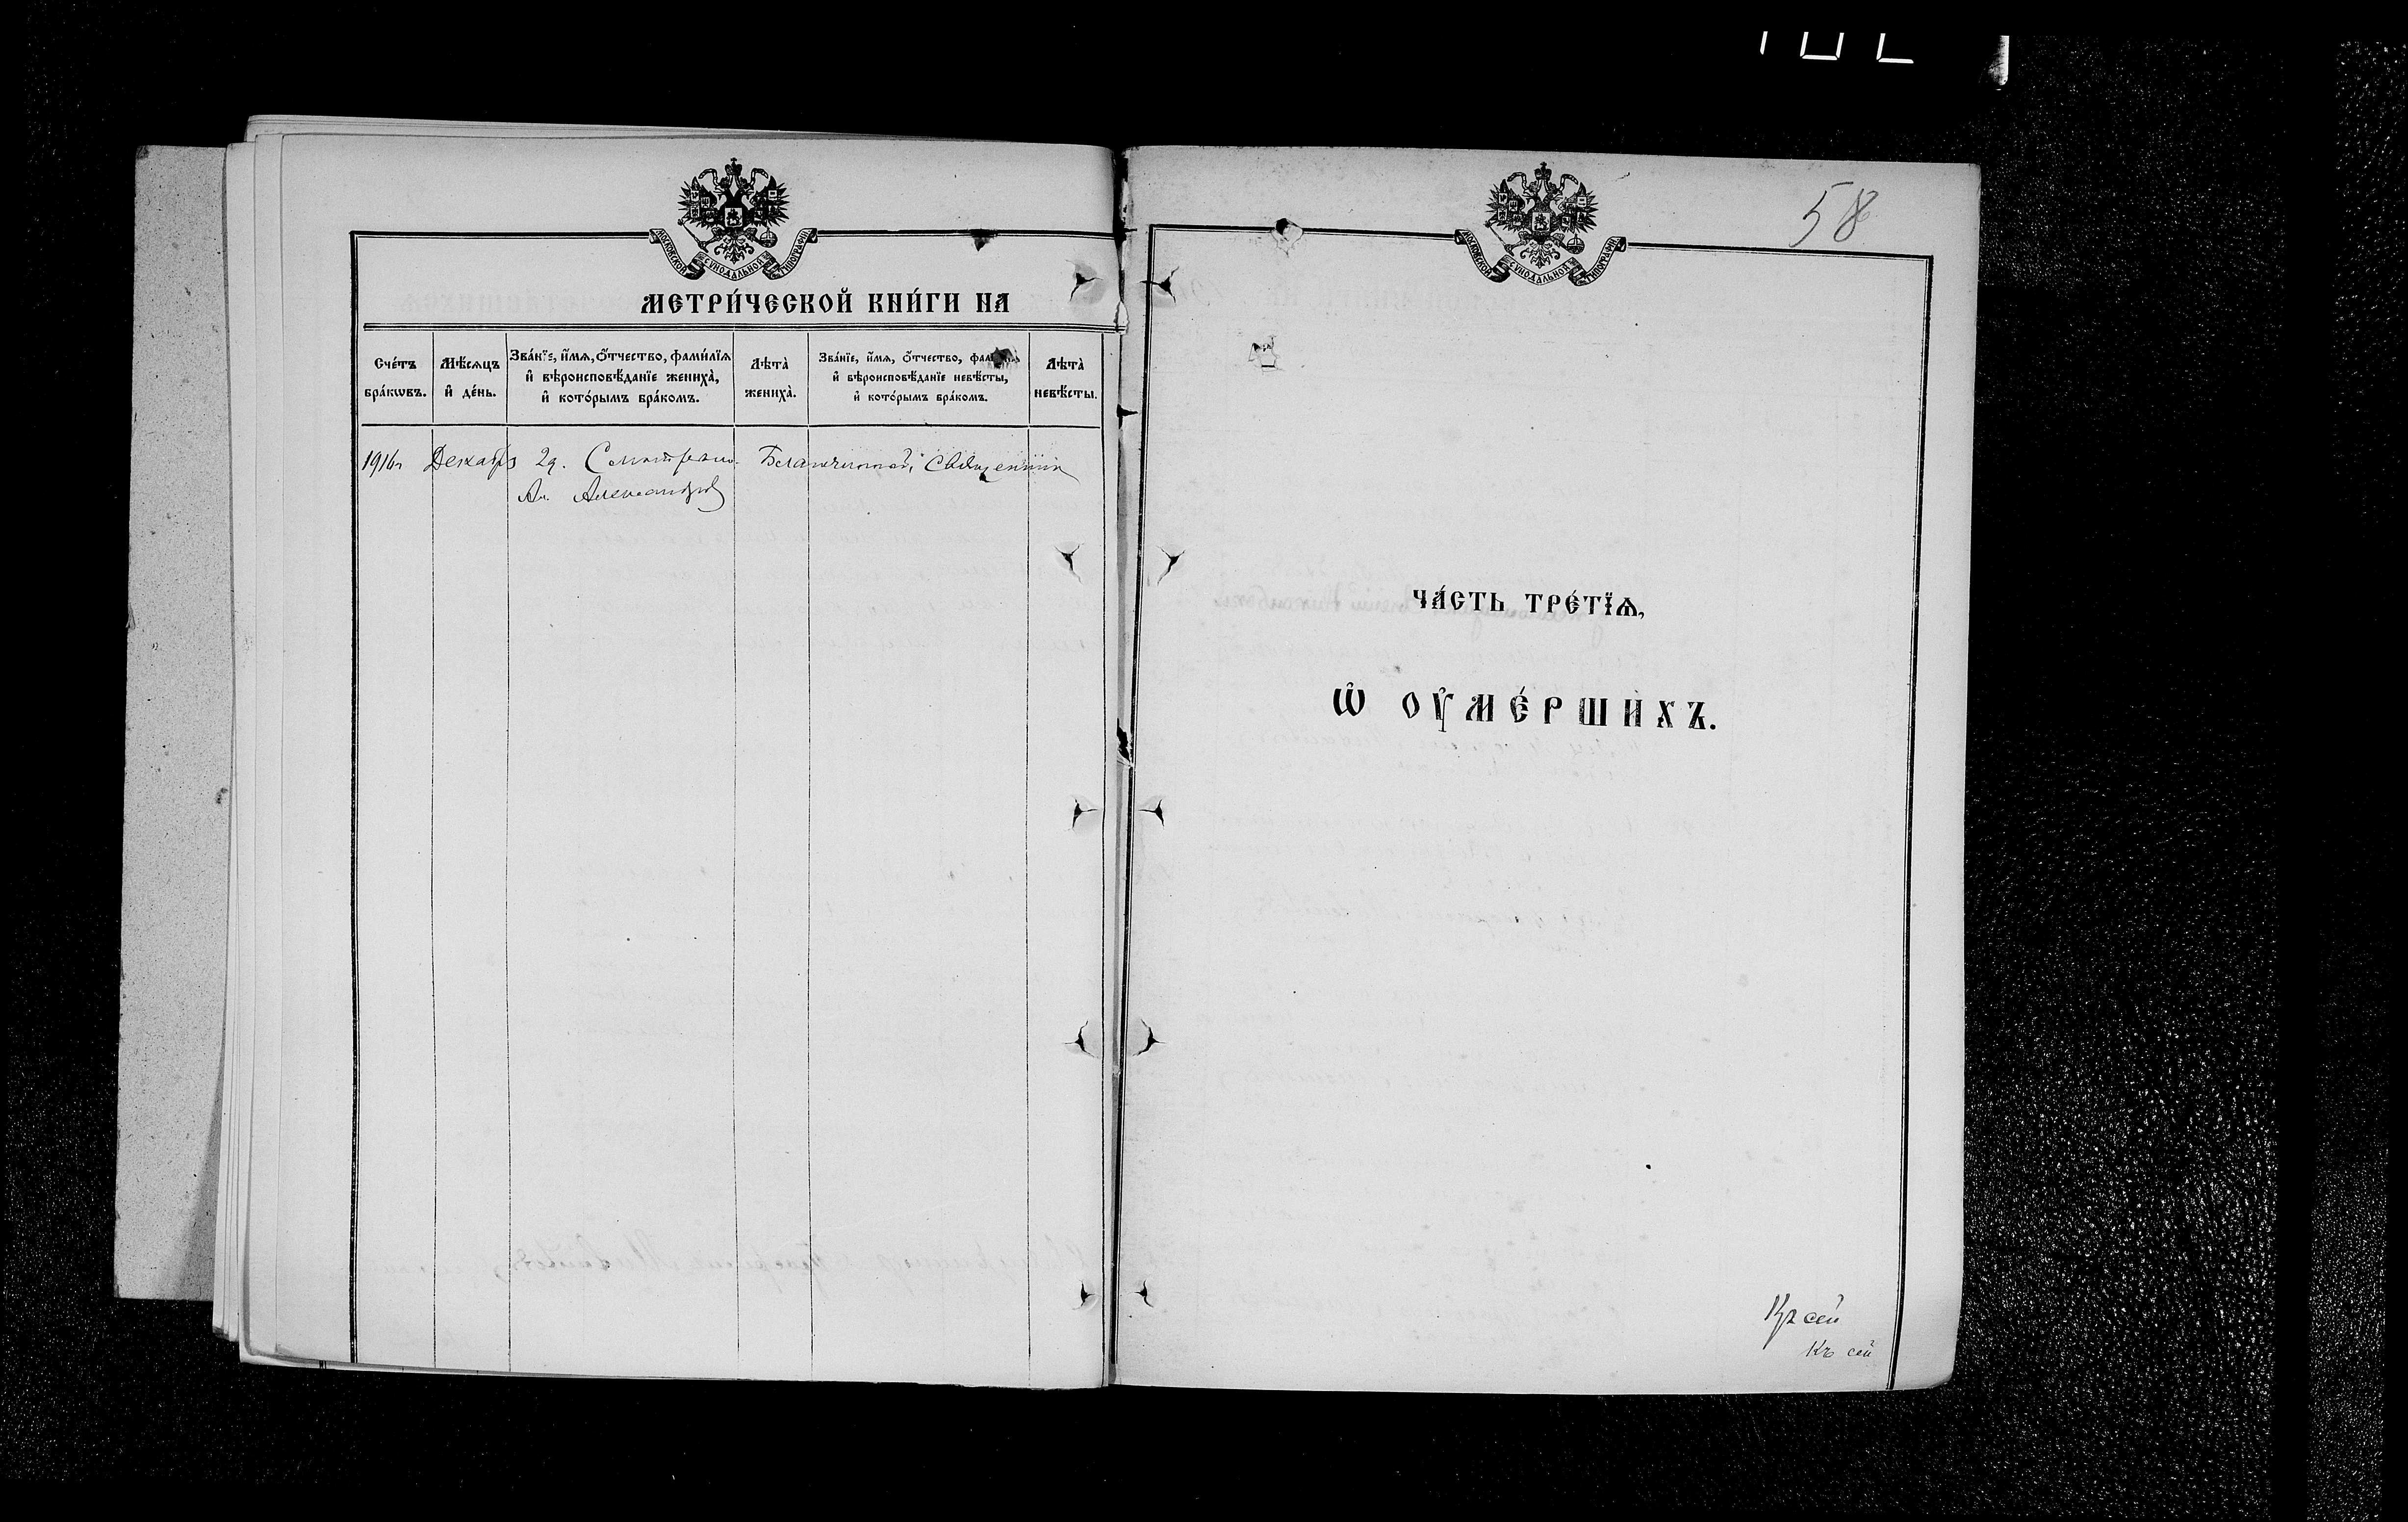 МОСКОВСКОЙ СѴНОДАЛЬНОЙ ТИПОГРАФІИ
МЕТРИ́ЧЕСКОЙ КНИ́ГИ НА
Сче́тъ бра́кѡвъ.
Мѣ́сяцъ и҆ де́нь.
Зва́нїе, и҆́мѧ, ѻ҆́тчество, фами́лїѧ
и҆ вѣроисповѣ́данїе жениха̀,
и҆ кото́рымъ бра́комъ.
Лѣта̀ жениха̀.
Зва́нїе, и҆́мѧ, ѻ҆́тчество,
и҆ вѣроисповѣ́данїе невѣ́сты,
и҆ кото́рымъ бра́комъ.
Лѣта̀ невѣ́сты.
1916 г Декабрь 29. Священник
Ал. Александров
МОСКОВСКОЙ СѴНОДАЛЬНОЙ ТИПОГРАФІИ
58
ЧА́СТЬ ТРЕ́ТЇѦ,
Ѡ҆ ОУ҆МЕ́РШИХЪ.
Къ сей
Къ сей